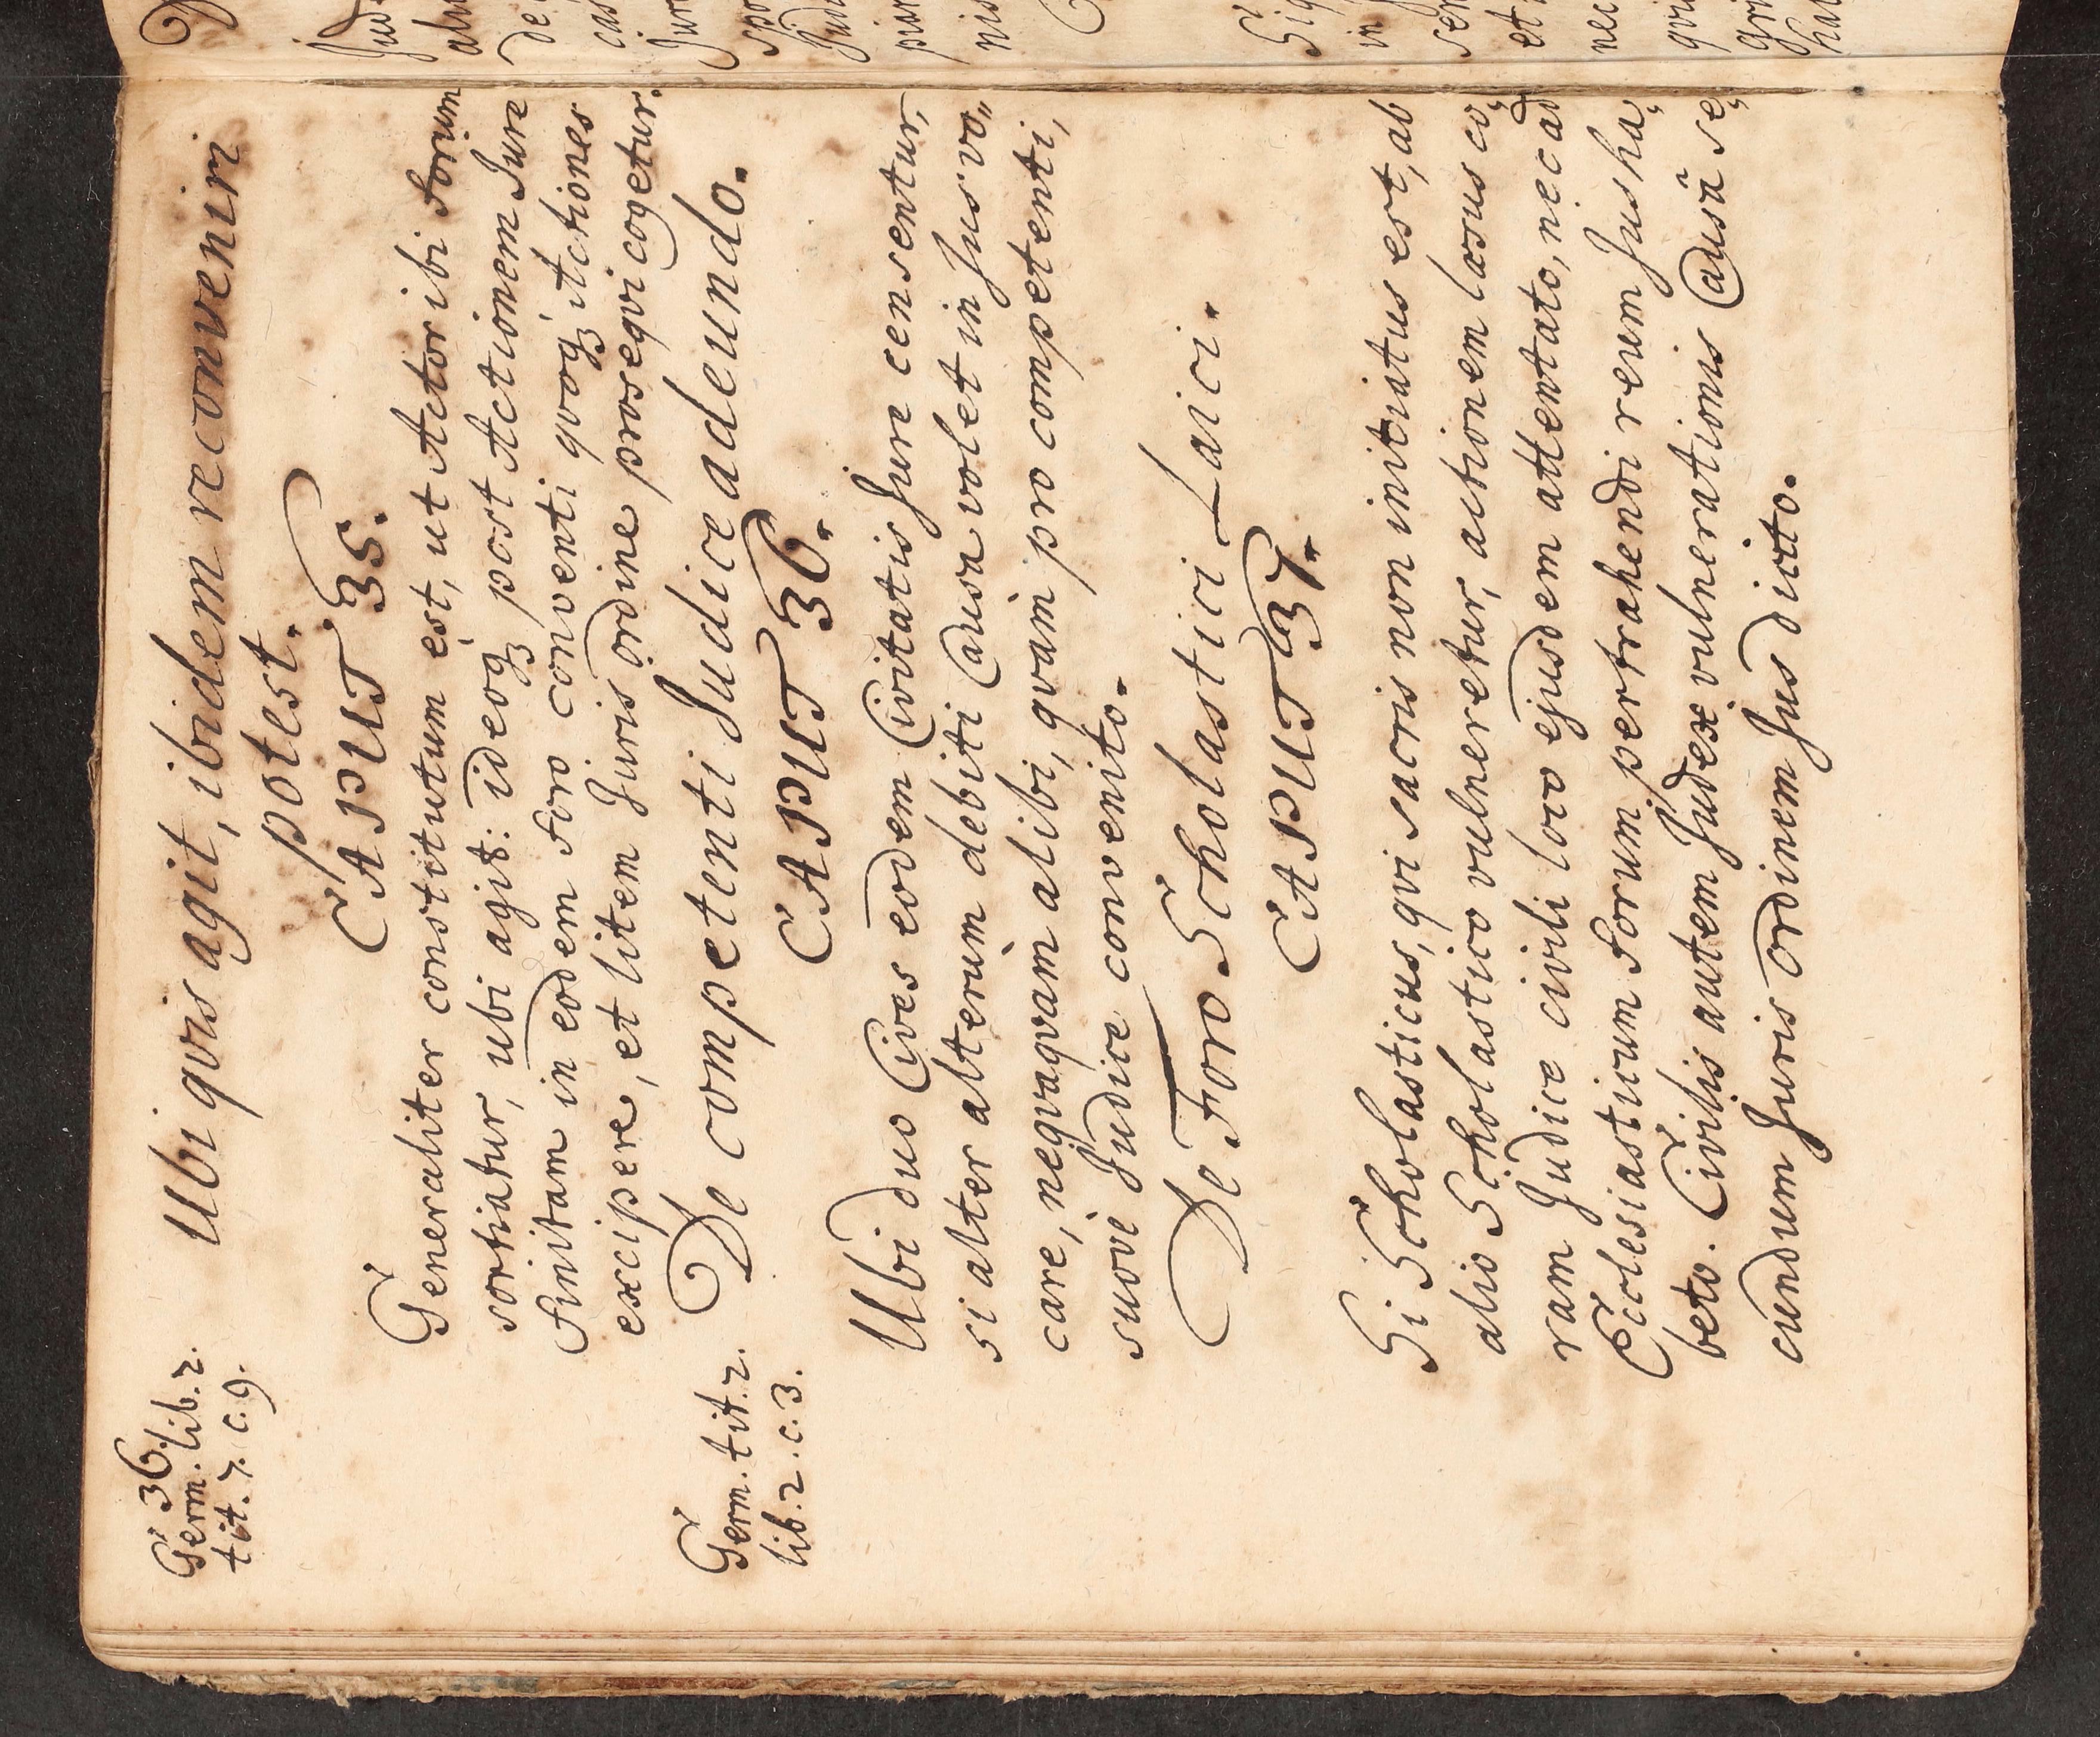 36.
Germ. lib. 2.
tit. 7. c. 9.
Ubi qvis agit, ibidem reconveniri
potest.
CAPUT. 35.
Generaliter constitutum est, ut Actor ibi forum
sortiatur, ubi agit: ideoqꝫ post Actionem Jure
finitam in eodem foro conventi qvoqꝫ Actiones
excipere, et litem Juris ordine proseqvi cogetur.
Germ. tit. 2.
lib. 2. c. 3.
De competenti Judice adeundo.
CAPUT 36.
Ubi duo Cives eodem Civitatis Jure censentur,
si alter alterum debiti Causa volet in Jus vo„
care, neqvaqvam alibi, qvàm pro competenti,
suovè Judice convenito.
De Foro Scholastici Laici.
CAPUT 37.
Si Scholasticus, qvi sacris non initiatus est, ab
alio Scholastico vulneretur, actionem læsus co„
ram Judice civili loco ejusdem attentato, nec ad
Ecclesiasticum forum pertrahendi reum Jus ha„
beto. Civilis autem Judex vulnerationis Causâ se„
cundum Juris ordinem Jus dicito.